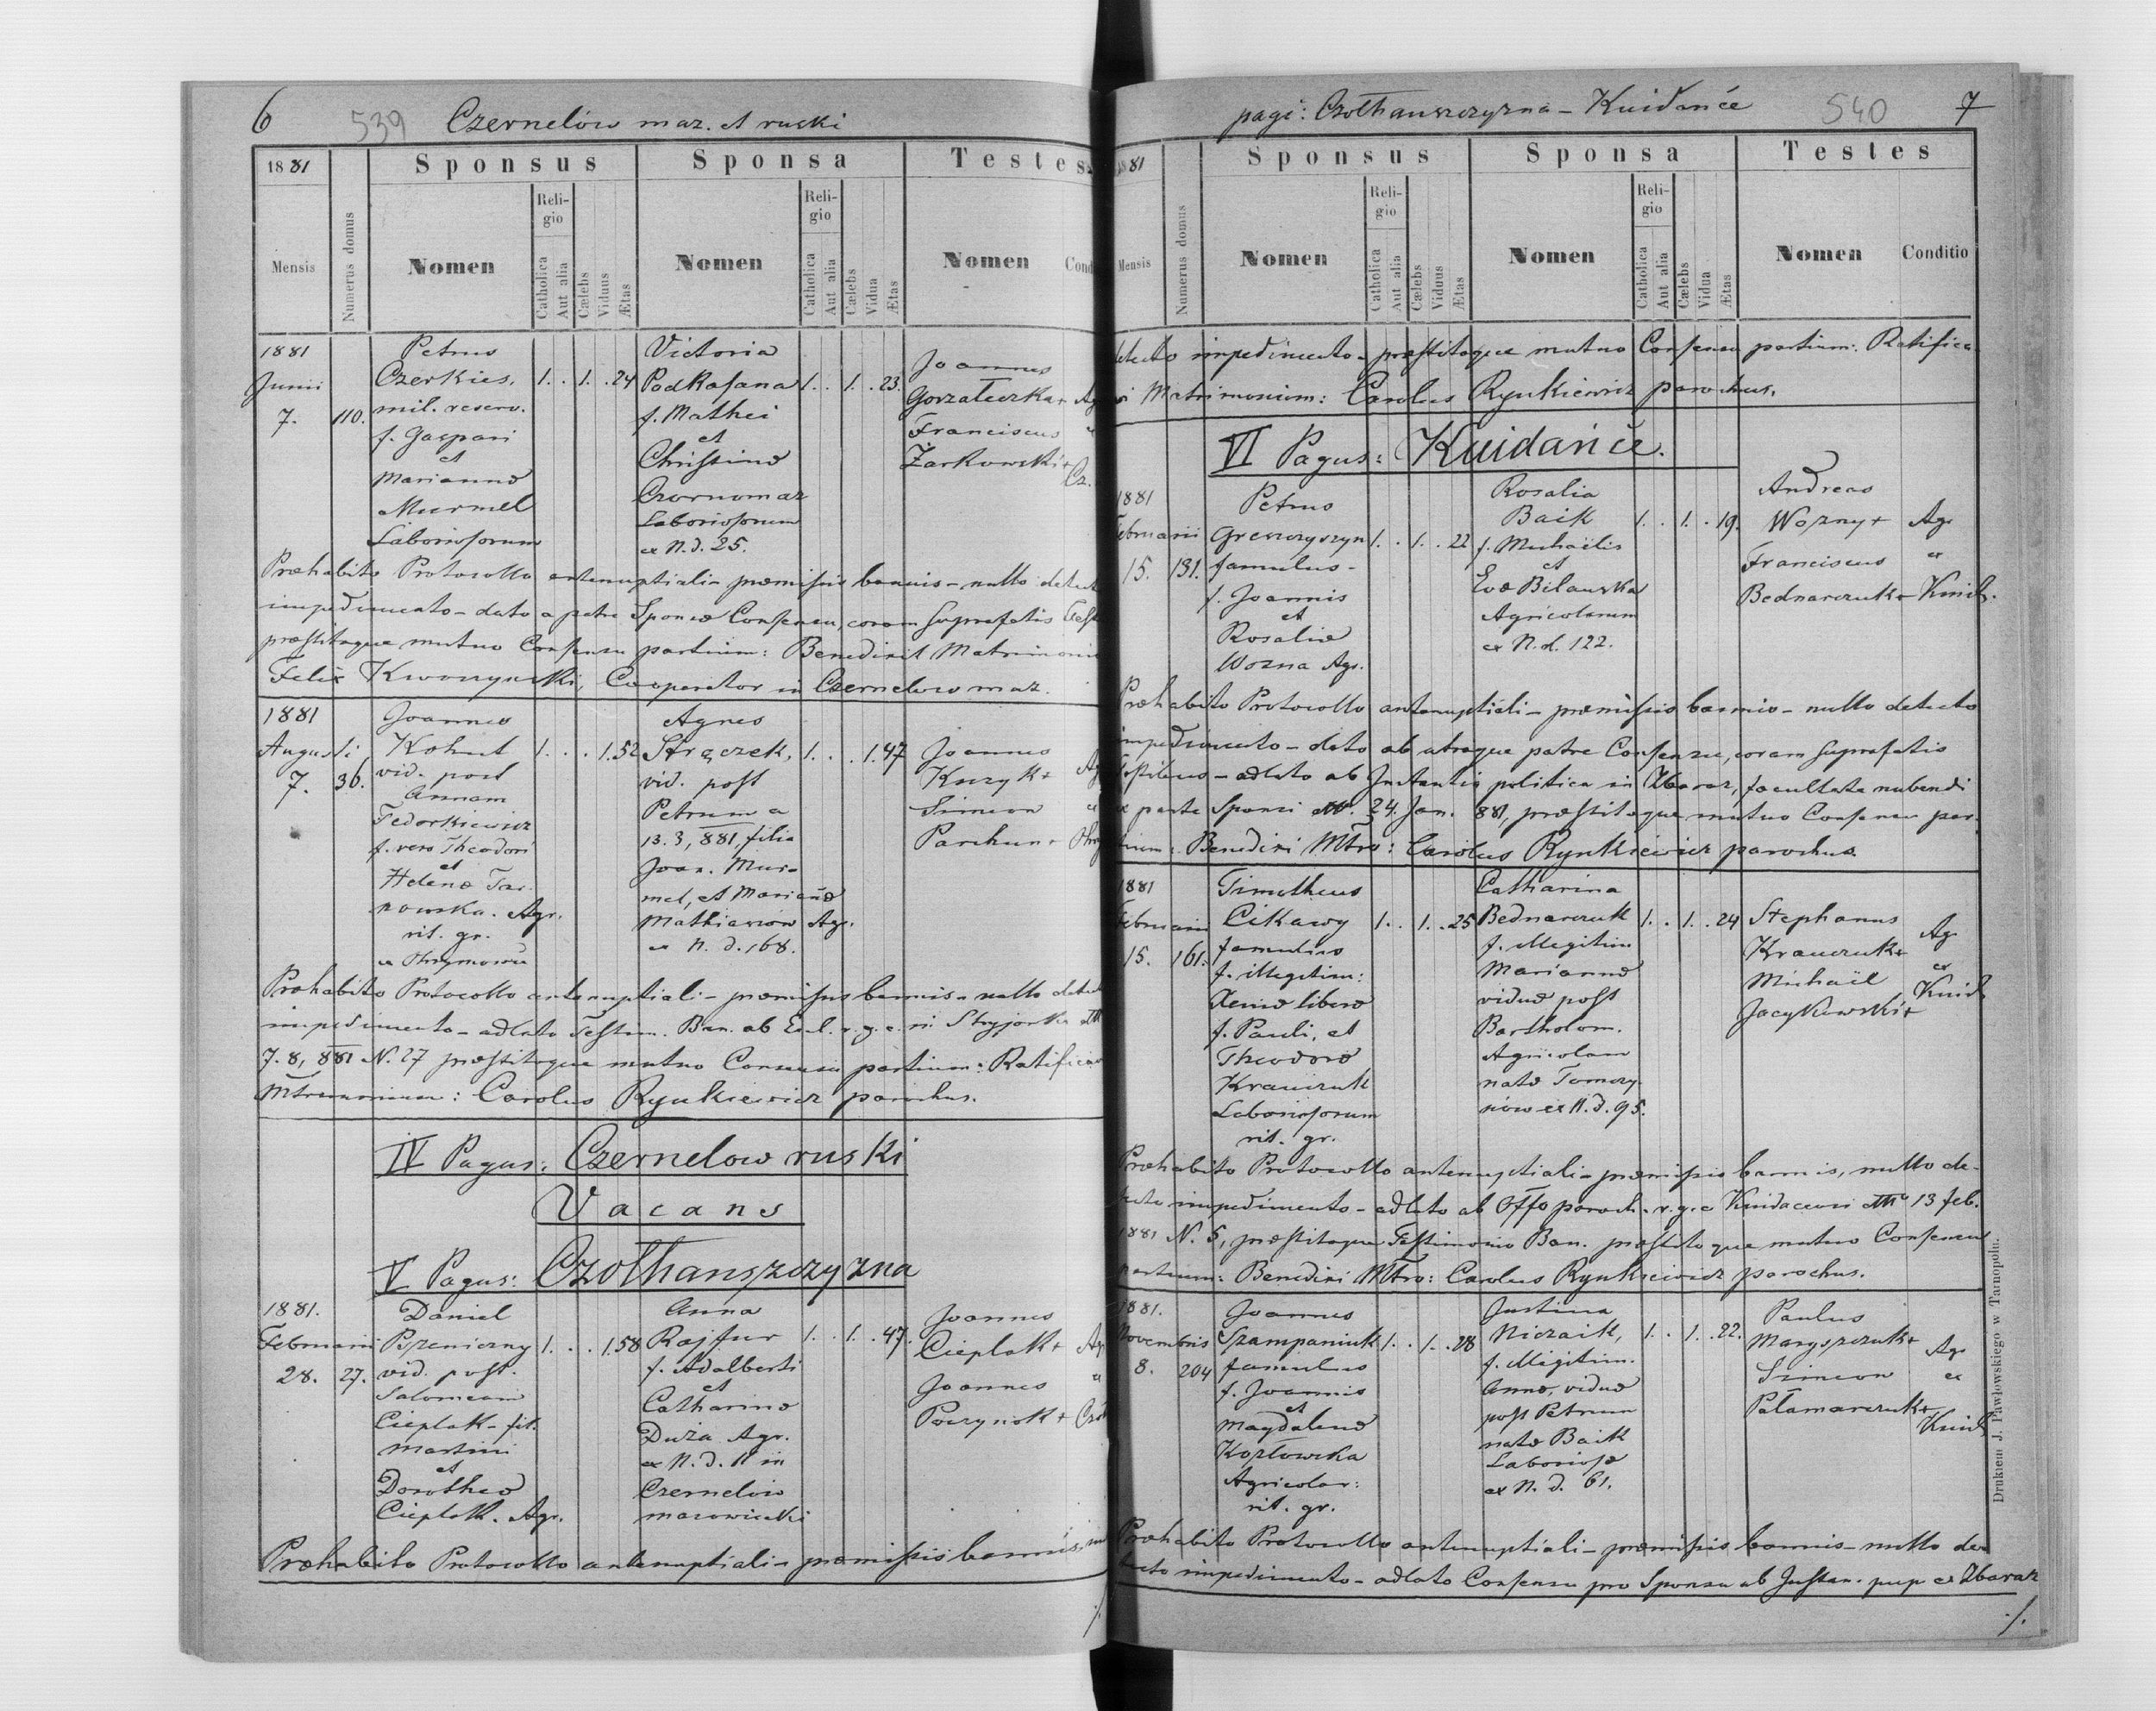 6 539 Czernelów maz. et ruski
1881 Sponsus Sponsa Testes
Mensis Numerus domus Nomen Religio Catholica Aut alia Cælebs Viduus Ætas Nomen Religio Catholica Aut alia Cælebs Vidua Ætas Nomen Cond
1881 Petrus Victoria Joannes
Junii Czerkies, 1. . 1. . 24 Podkasana 1. . 1. . 23. Gorzałeczka +
7. 110. mil. reserv. f. Mathei Franciscus
f. Gaspari et Żarkowski + Cz.
et Christinæ
Mariannæ Czornomaz
Murmel Laboriosorum
Laboriosorum ex N. d. 25.
Præhabito Protocollo antenuptiali - præmissis bannis - nullo detect
impedimento - dato a patre Sponsæ Consensu, coram suprafatis Test
præstitoque mutuo Consensu partium: Benedixit Matrimoniu
Felix Cooperator in Czernelow maz.
1881 Joannes Agnes
Augusti Kohut 1. . . 1. 52 Strączek, 1. . . 1. 47 Joannes
7. 36. vid. post vid. post Kuzyk +
Annam Petrum a Simeon
Fedorkiewicz 13. 3, 881, filia Parchun +
f. vero Theodori Joan. Mur-
et mel, et Mariañæ
Helenæ Tar- Mathiasów Agr.
nowska. Agr. ex N. d. 168.
rit. gr.
Præhabito Protocollo antenuptiali - præmissis bannis - nullo detect
impedimento - adlato Testim. Ban. ab r. g. c. in Stryjówka
7. 8, 881 N. 27 præstitoque mutuo Consensu partium: Ratificavi
Mtrimonium: Carolus Rynkiewicz parochus.
IV Pagus: Czernelow ruski
Vacans
V Pagus: Czołhanszczyzna
1881. Daniel Anna Joannes
Februarii Pszeniczny 1. . . 1. 58 Rajfur 1. . 1. . 47. Cieplak +
28. 27. vid. post. f. Adalberti Joannes
Salomeam et Poczynok +
Cieplak - fil. Catharinæ
Martini Duża Agr.
et ex N. d. 11 in
Dorotheæ Czernelów
Cieplak. Agr. mazowiecki
Præhabito Protocollo antenuptiali - præmissis bannis,
./.
pagi: Czołhanszczyzna - Kuidańce 540 7
1881 Sponsus Sponsa Testes
Mensis Numerus domus Nomen Religio Catholica Aut alia Cælebs Viduus Ætas Nomen Religio Catholica Aut alia Cælebs Vidua Ætas Nomen Conditio
detecto impedimento - præstitoque mutuo Consensu partium: Ratifica-
vi Matrimonium: Carolus Rynkiewicz parochus.
VI Pagus: Kuidańce.
1881 Petrus Rosalia Andreas
Februarii Greszczyszyn 1. . 1. . 22 Baik 1. . 1. . 19. Wozny + Agr
15. 131. famulus - f. Michaëlis Franciscus ex
f. Joannis et Bednarczuk + Kuid.
et Evæ Bilawska
Rosaliæ Agricolarum
Wozna Agr. ex N. d. 122.
Præhabito Protocollo antenuptiali - præmissis bannis - nullo detecto
impedimento - dato ab utroque patre Consensu, coram suprafatis
Testibus - adlato ab Instantia politica in Zbaraz, facultate nubendi
ex parte Sponsi 24. Jan. 881, præstitoque mutuo Consensu par-
tium: Benedixi Mtro: Carolus Rynkiewicz parochus.
1881 Timotheus Catharina
Februarii Cikawy 1. . 1. . 25 Bednarczuk 1. . 1. . 24 Stephanus Agr
15. 161. famulus f. illegitim Krawczuk + ex
f. illegitim: Mariannæ Michaël Kuid
Xeniæ liberæ viduæ post Jacykowski +
f. Pauli, et Bartholom.
Theodoræ Agricolam
Krawczuk natæ Tomczy-
Laboriosorum nów ex N. d. 95.
rit. gr.
Præhabito Protocollo antenuptiali - præmissis bannis, nullo de-
tecto impedimento - adlato ab Offo paroch. r. g. c. Kuidaceusi 13 feb.
1881 N. 5, præstitoque Testimonio Ban. præstitoque mutuo Consensu
partium: Benedixi Mtro: Carolus Rynkiewicz parochus.
1881. Joannes Justina Paulus
Novembris Szampaniuk 1. . 1. . 28 Niczaik, 1. . 1. . 22. Maryszczuk + Agr
8. 204 famulus f. illegitim. Simeon ex
f. Joannis Annæ, viduæ Pałamarczuk + Kuid
et post Petrum
Magdalenæ natæ Baik
Kozłowska Laboriosæ
Agricolar: ex N. d. 61.
rit. gr.
Præhabito Protocollo antenuptiali - præmissis bannis - nullo de-
tecto impedimento - adlato Consensu pro Sponsa ab Instan. pup ex Zbaraz
./.
Drukiem J. Pawłowskiego w Tarnopolu.